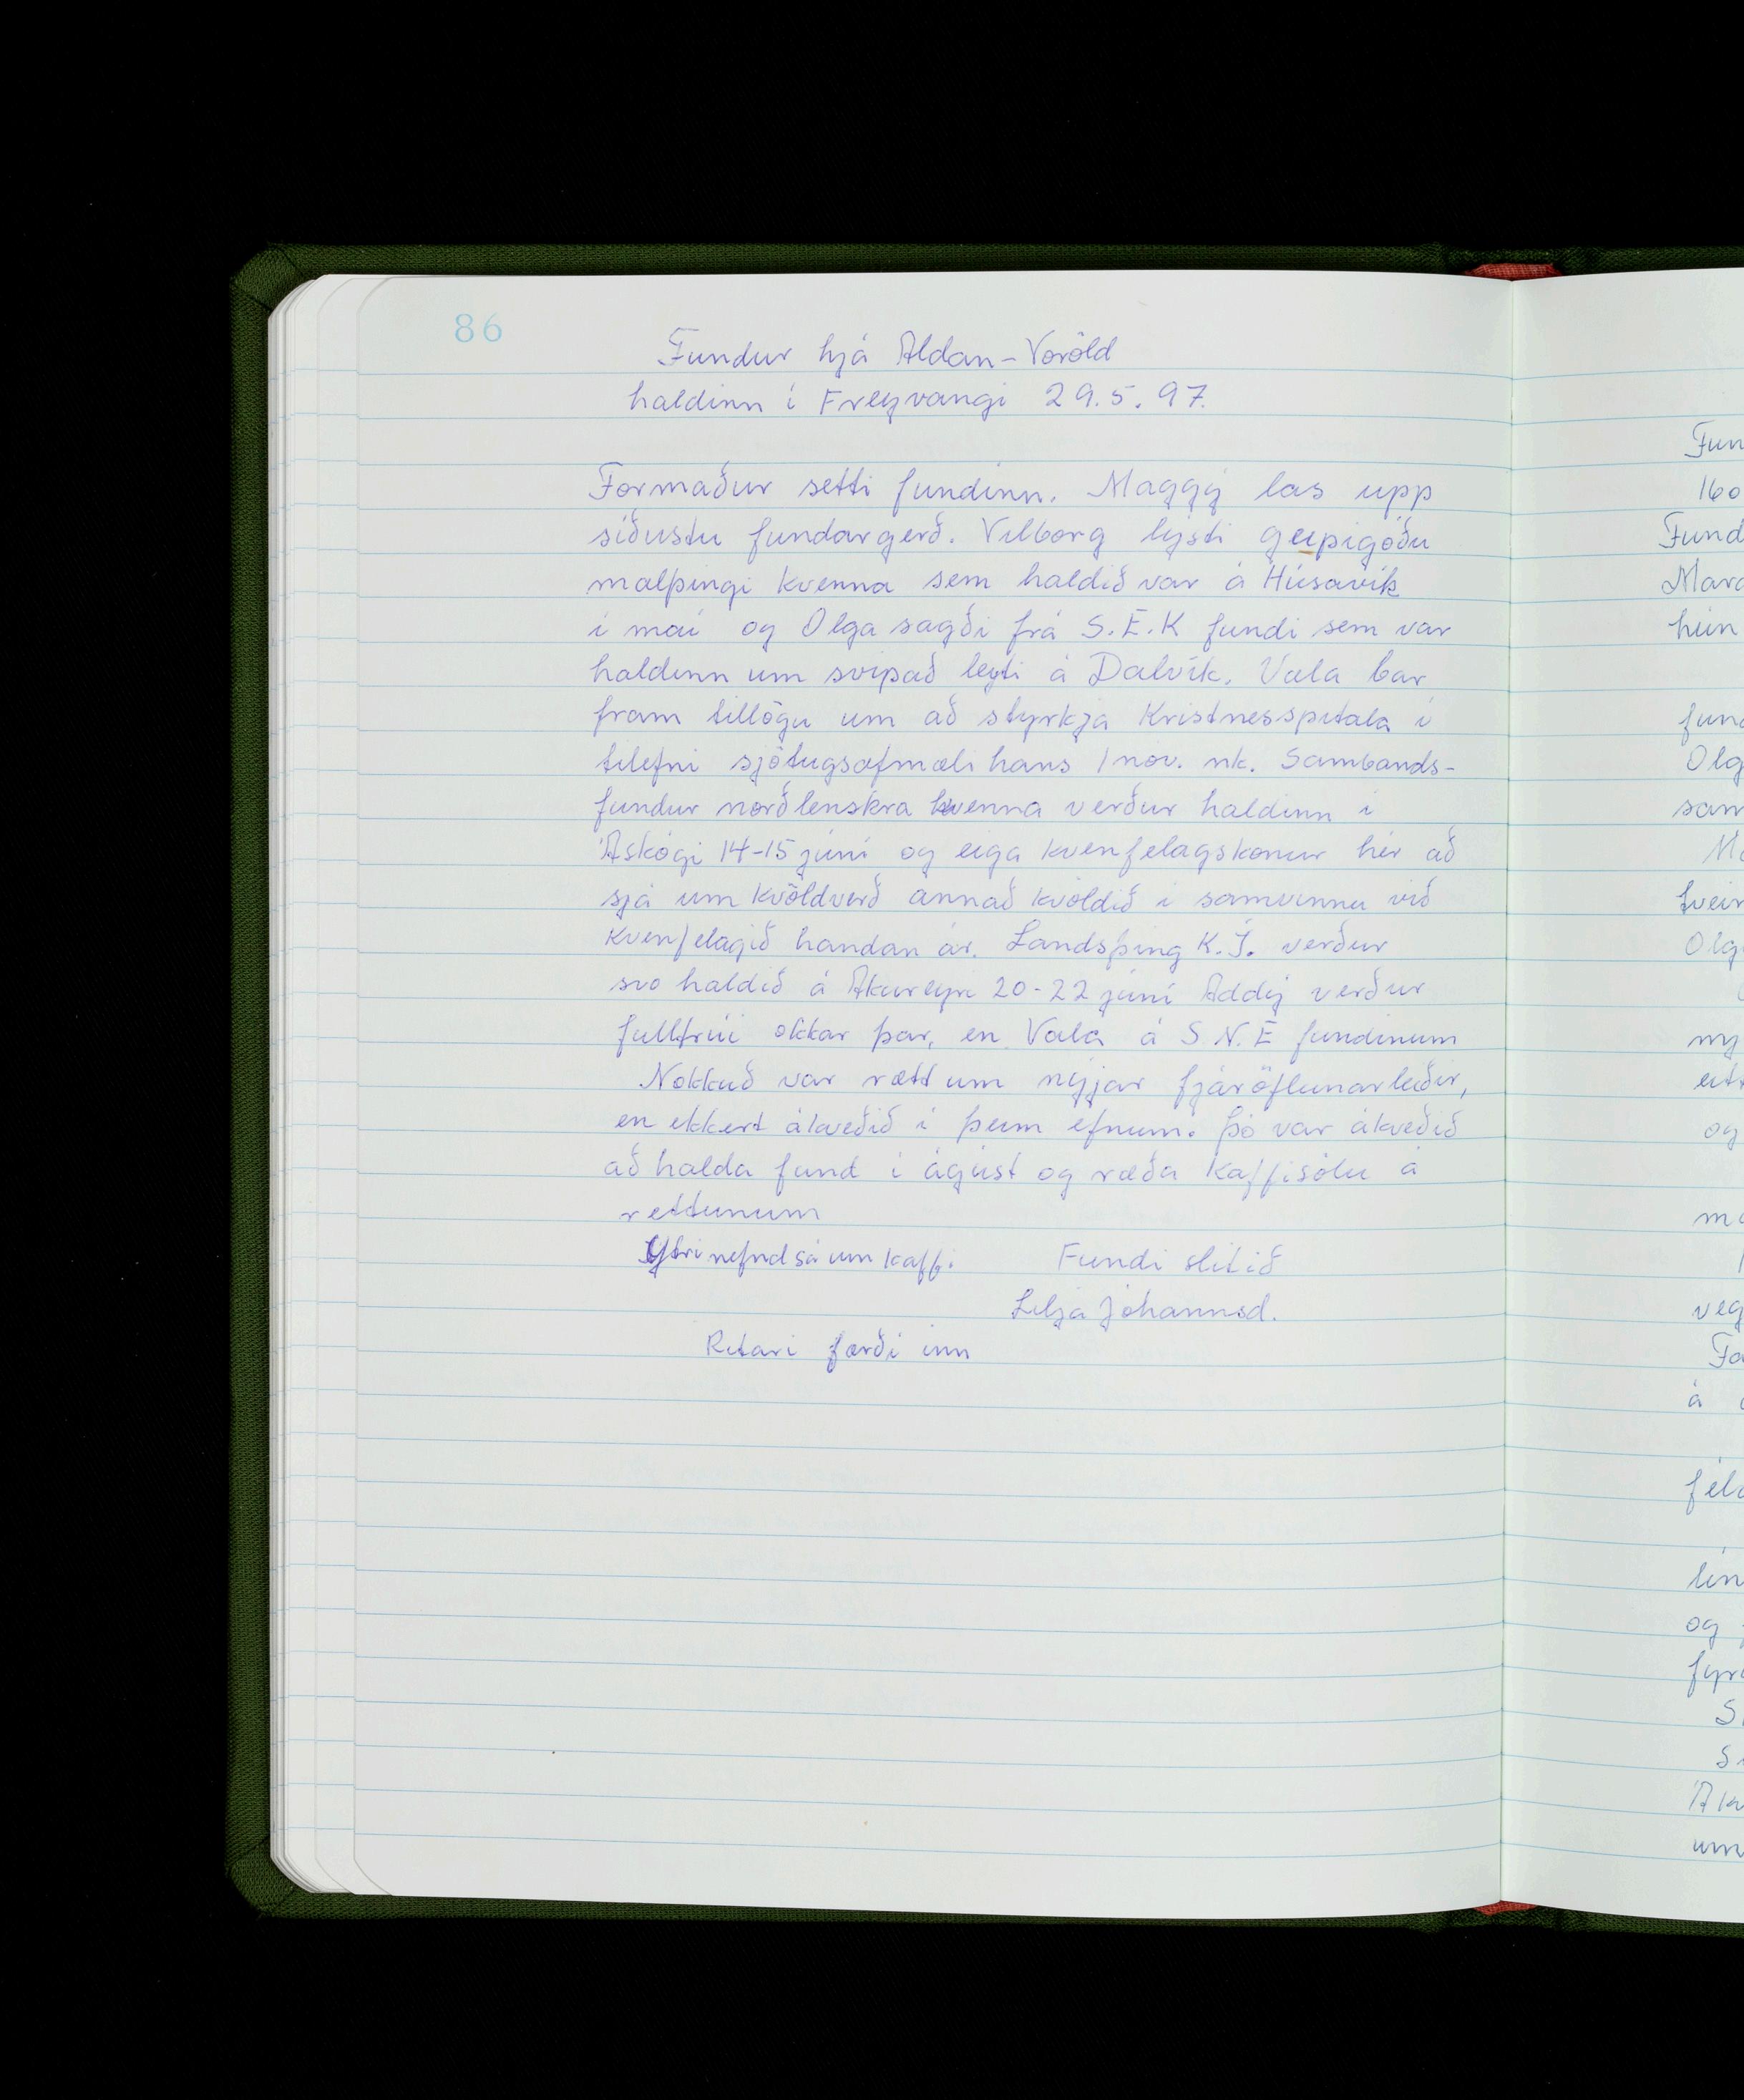 86
Fundur hjá Aldan-Voröld
haldinn í Freyvangi 29.5.97.
Formaður setti fundinn. Maggý las upp
síðustu fundargerð. Vilborg lýsti geipigóðu
málþingi kvenna sem haldið var á Húsavík
í maí og Olga sagði frá S.E.K fundi sem var
haldinn um svipað leyti á Dalvík. Vala bar
fram tillögu um að styrkja Kristnesspítala í
tilefni sjötugsafmæli hans 1 nóv. nk. Sambands-
fundur norðlenskra kvenna verður haldinn í
Áskógi 14-15 júní og eiga kvenfélagskonur hér að
sjá um kvöldverð annað kvöldið í samvinnu við
kvenfélagið handan ár. Landsþing K.Í. verður
svo haldið á Akureyri 20-22 júní Addý verður
fulltrúi okkar þar, en Vala á S.N.E fundinum
Nokkuð var rætt um nýjar fjáröflunarleiðir,
en ekkert ákveðið í þeim efnum. Þó var ákveðið
að halda fund í ágúst og ræða kaffisölu á
réttunum
Ytri nefnd sá um kaffi. Fundi slitið
Lilja Jóhannsd.
Ritari færði inn
Fun
160
Fund
hún
fund
Olg
sam
tvein
Olg
og
veg
á
féla
og
um